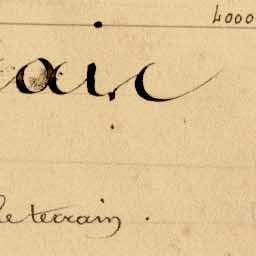 4000
air
le terrain .